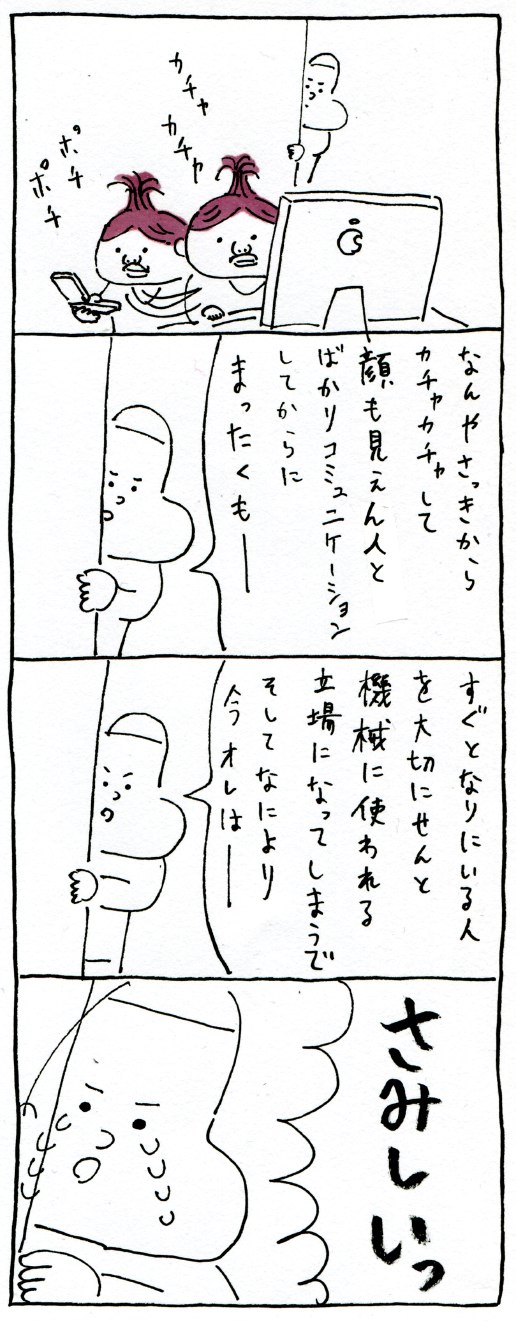 カチャ
カチャ
ポチ
ポチ
なんやさっきから
カチャカチャして
顔も見えん人と
ばかりコミュニケーション
してからに
まったくもー
すぐとなりにいる人
を大切にせんと
機械に使われる
立場になってしまうで
そしてなにより
今オレはー
さみしいっ